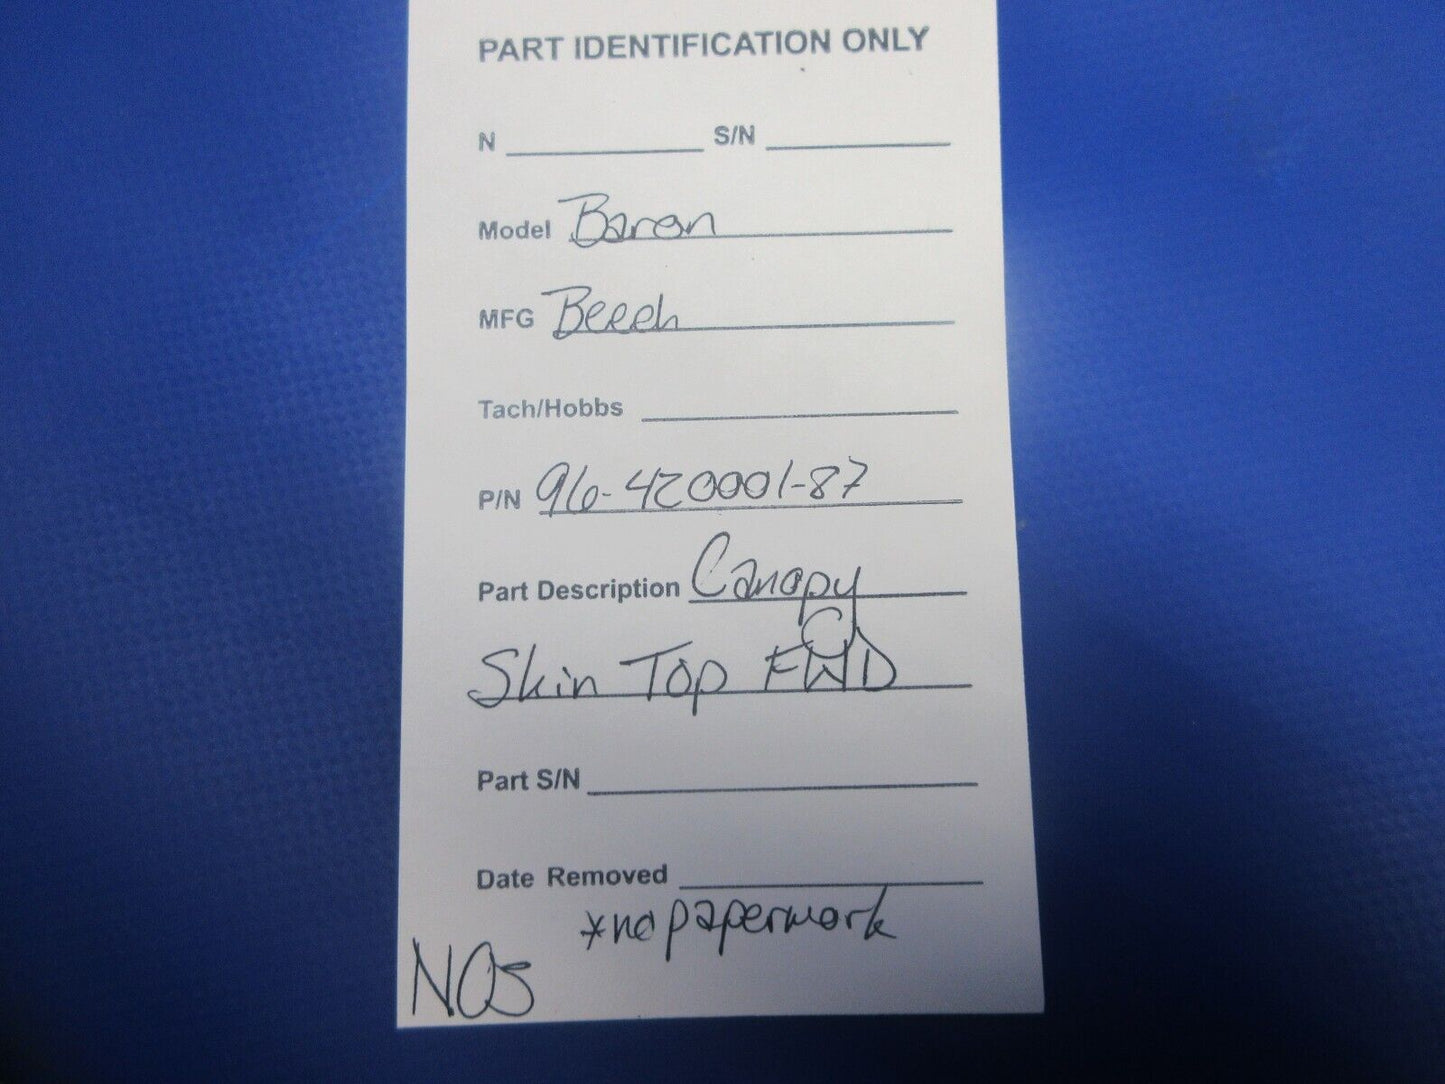 PART IDENTIFICATION ONLY
N S/N
Model Baron
MFG Beech
Tach/Hobbs
P/N 96-420001-87
Part Description Canopy
Skin Top FWD
Part S/N
Date Removed
*no paperwork
NOS